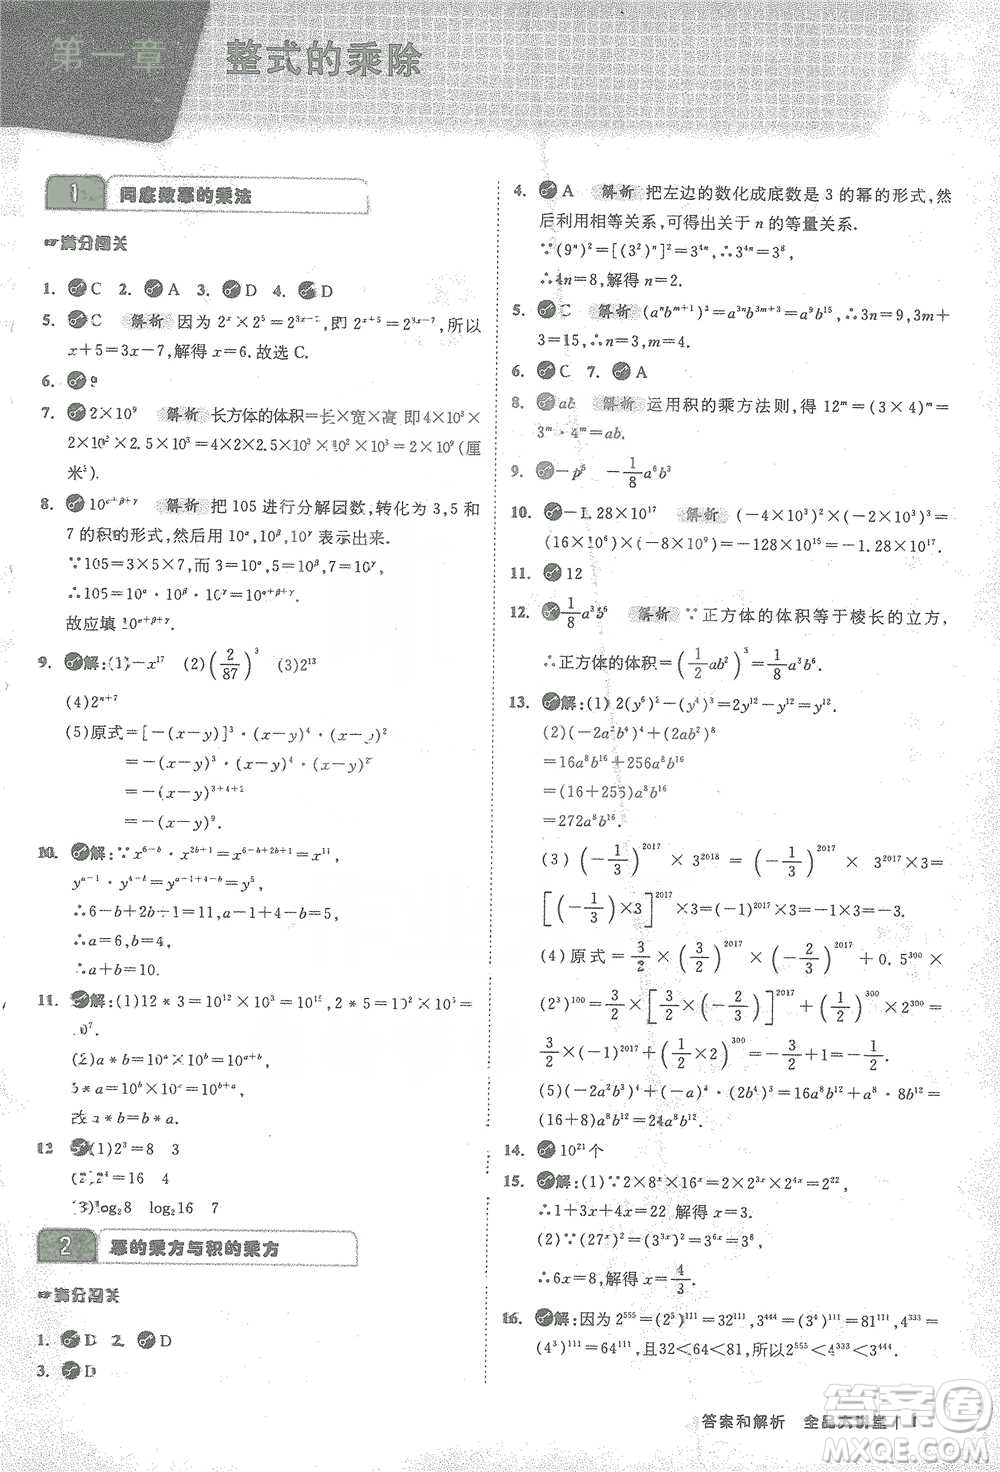 第一章 整式的乘除
1 同底数幂的乘法
满分闯关
1. C 2. A 3. D 4. D
5. C 解析 因为 2ˣ×2⁵=2³ˣ⁻⁷,即 2ˣ⁺⁵=2³ˣ⁻⁷,所以
x+5=3x-7,解得 x=6.故选 C.
6. 9
7. 2×10⁹ 解析 长方体的体积=长×宽×高 即 4×10²×
2×10²×2.5×10³=4×2×2.5×10³×10²×10²(厘
米³).
8. 10^(α+β+γ) 解析 把 105 进行分解因数,转化为 3,5 和
7 的积的形式,然后用 10^α,10^β,10^γ 表示出来.
∵105=3×5×7,而 3=10^α,5=10^β,7=10^γ,
∴105=10^α·10^β·10^γ=10^(α+β+γ).
故应填 10^(α+β+γ).
9. 解:(1)-x¹⁷ (2)(2/87)³ (3)2¹³
(4)2ⁿ⁺⁷
(5)原式=[-(x-y)]³·(x-y)⁴·(x-y)²
=-(x-y)³·(x-y)⁴·(x-y)²
=-(x-y)³⁺⁴⁺²
=-(x-y)⁹.
10. 解:∵x^(6-b)·x^(2b+1)=x^(6-b+2b+1)=x¹¹,
y^(a-1)·y^(4-b)=y^(a-1+4-b)=y⁵,
∴6-b+2b+1=11,a-1+4-b=5,
∴a=6,b=4,
∴a+b=10.
11. 解:(1)12*3=10¹²×10³=10¹⁵,2*5=10²×10⁵=
10⁷.
(2)a*b=10ᵃ×10ᵇ=10ᵃ⁺ᵇ,
b*a=10ᵇ×10ᵃ=10ᵇ⁺ᵃ,
故 a*b=b*a.
12 (1)2³=8 3
(2)2⁴=16 4
(3)log₂8 log₂16 7
2 幂的乘方与积的乘方
满分闯关
1. D 2. D
3. D
4. A 解析 把左边的数化成底数是 3 的幂的形式,
然后利用相等关系,可得出关于 n 的等量关系.
∵(9ⁿ)²=[(3²)ⁿ]²=3⁴ⁿ,∴3⁴ⁿ=3⁸,
∴4n=8,解得 n=2.
5. C 解析 (aⁿbᵐ⁺¹)³=a³ⁿb³ᵐ⁺³=a⁹b¹⁵,∴3n=9,3m+
3=15,∴n=3,m=4.
6. C 7. A
8. ab 解析 运用积的乘方法则,得 12ᵐ=(3×4)ᵐ=
3ᵐ·4ᵐ=ab.
9. -p⁵ -1/8 a⁶b³
10. -1.28×10¹⁷ 解析 (-4×10³)²×(-2×10³)³=
(16×10⁶)×(-8×10⁹)=-128×10¹⁵=-1.28×10¹⁷.
11. 12
12. 1/8 a³b⁶ 解析 ∵正方体的体积等于棱长的立方,
∴正方体的体积=(1/2 ab²)³=1/8 a³b⁶.
13. 解:(1)2(y⁶)²-(y⁴)³=2y¹²-y¹²=y¹².
(2)(-2a²b⁴)⁴+(2ab²)⁸
=16a⁸b¹⁶+256a⁸b¹⁶
=(16+256)a⁸b¹⁶
=272a⁸b¹⁶.
(3)(-1/3)²⁰¹⁷×3²⁰¹⁸=(-1/3)²⁰¹⁷×3²⁰¹⁷×3=
[(-1/3)×3]²⁰¹⁷×3=(-1)²⁰¹⁷×3=(-1)×3=-3.
(4)原式=3/2×(3/2)²⁰¹⁷×(-2/3)²⁰¹⁷+0.5³⁰⁰×
(2³)¹⁰⁰=3/2×[3/2×(-2/3)]²⁰¹⁷+(1/2)³⁰⁰×2³⁰⁰=
3/2×(-1)²⁰¹⁷+(1/2×2)³⁰⁰=-3/2+1=-1/2.
(5)(-2a²b³)⁴+(-a)⁸·(2b⁴)³=16a⁸b¹²+a⁸·8b¹²=
(16+8)a⁸b¹²=24a⁸b¹².
14. 10²¹个
15. 解:(1)∵2×8ˣ×16ˣ=2×2³ˣ×2⁴ˣ=2¹⁺⁷ˣ=2²²,
∴1+7x=22,解得 x=3.
(2)∵(27ˣ)²=(3³ˣ)²=3⁶ˣ=3⁸,
∴6x=8,解得 x=4/3.
16. 解:因为 2⁵⁵⁵=(2⁵)¹¹¹=32¹¹¹,3⁴⁴⁴=(3⁴)¹¹¹=
81¹¹¹,4³³³=(4³)¹¹¹=64¹¹¹,且32<64<81,所以2⁵⁵⁵<4³³³<3⁴⁴⁴.
答案和解析 全品大讲堂 1
答案圈
MXQE.COM